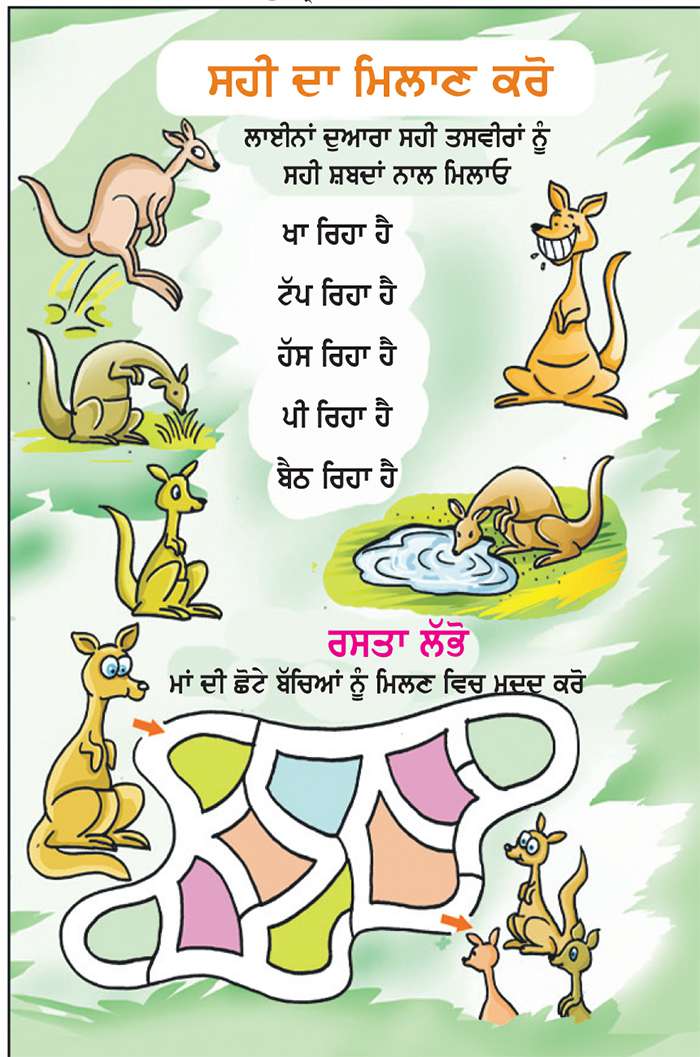 ਸਹੀ ਦਾ ਮਿਲਾਣ ਕਰੋ
ਲਾਈਨਾਂ ਦੁਆਰਾ ਸਹੀ ਤਸਵੀਰਾਂ ਨੂੰ
ਸਹੀ ਸ਼ਬਦਾਂ ਨਾਲ ਮਿਲਾਓ
ਖਾ ਰਿਹਾ ਹੈ
ਟੱਪ ਰਿਹਾ ਹੈ
ਹੱਸ ਰਿਹਾ ਹੈ
ਪੀ ਰਿਹਾ ਹੈ
ਬੈਠ ਰਿਹਾ ਹੈ
ਰਸਤਾ ਲੱਭੋ
ਮਾਂ ਦੀ ਛੋਟੇ ਬੱਚਿਆਂ ਨੂੰ ਮਿਲਣ ਵਿਚ ਮਦਦ ਕਰੋ